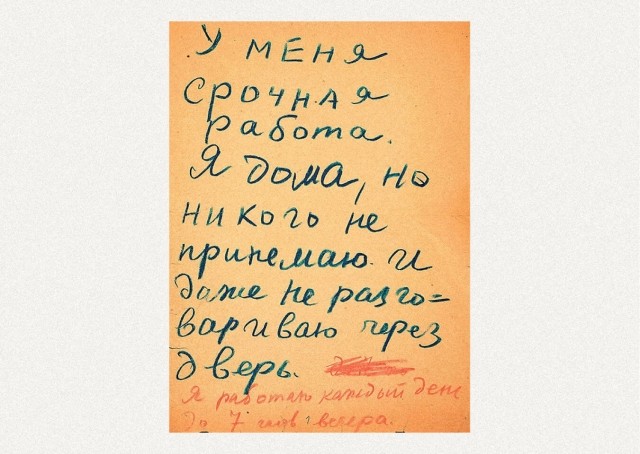 У меня
срочная
работа.
Я дома, но
никого не
принемаю и
даже не разго=
вариваю через
дверь.
Я работаю каждый день
до 7 часов вечера.